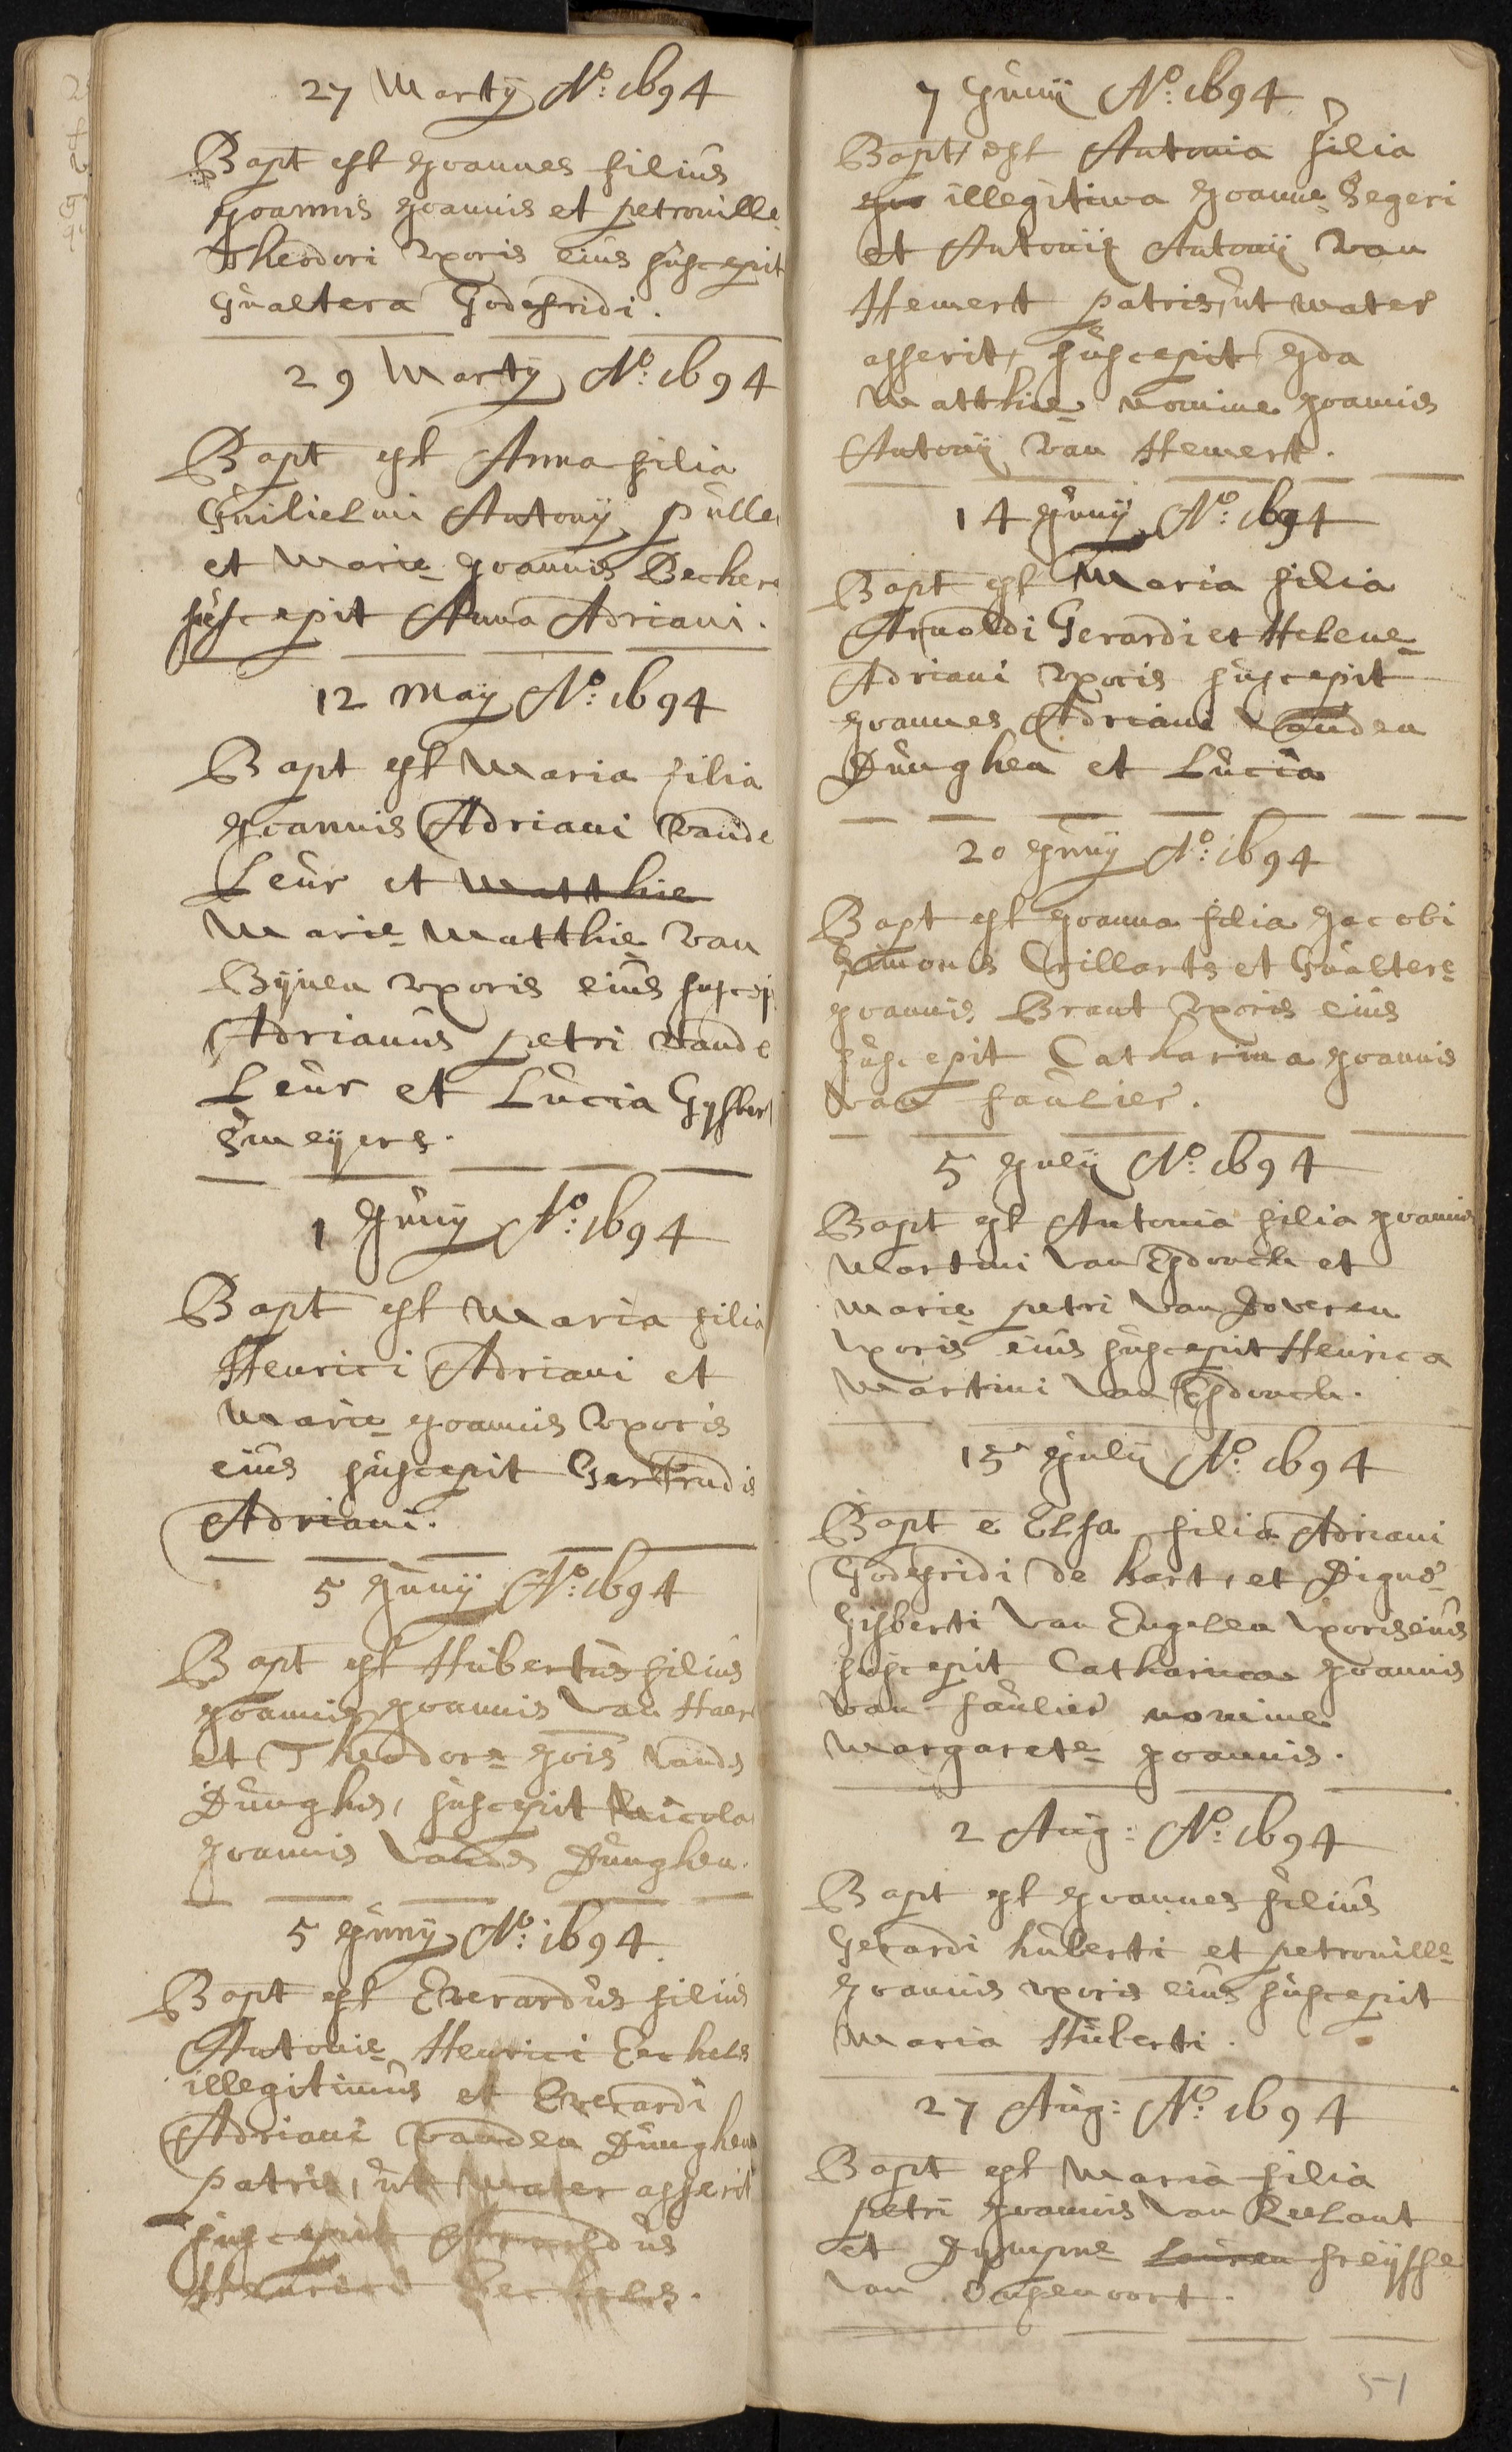 27 Martÿ Aº: 1694
Bapt est Joannes filius
Joannis Joannis et petronille
Theodori Uxoris eius suscepit
Gualtera Godefridi.
29 Martÿ Aº: 1694
Bapt est Anna filia
Guilielmi Antonÿ pulle
et Marie Joannis Becker
suscepit Anna Adriani.
12 Maÿ Aº: 1694
Bapt est Maria filia
Joannis Adriani Vande
Leur et Matthie
Marie Matthie Van
Bÿnen Uxoris eius suscep
Adrianus petri Vande
Leur et Lucia Gÿsber
Smeÿers.
1 Junÿ Aº: 1694
Bapt est Maria filia
Henrici Adriani et
Marie Joannis Uxoris
eius suscepit Gertrudis
Adriani.
5 Junÿ Aº: 1694
Bapt est Hubertus filius
Joannis Joannis Van Haer
et Theodore Jois Vande
Dunghe, suscepit Nicola
Joannis Vanden Dunghen.
5 Junÿ Aº: 1694
Bapt est Everardus filius
Antonie Henrici Eechels
illegitimus et Everardi
Adriani Vanden Dunghen
patris, ut Mater asserit
suscepit Arnoldus
Henrici Eechels.
7 Junÿ Aº: 1694
Bapt, est Antonia filia
illegitima Joanne Segeri
et Antonÿ Antonÿ Van
Hemert patris, ut mater
asserit, suscepit Ida
Matthie nomine Joannis
Antonÿ Van Hemert.
14 Junÿ Aº: 1694
Bapt est Maria filia
Arnoldi Gerardi et Helene
Adriani Uxoris suscepit
Joannes Adriani Vanden
Dunghen et Lucia
20 Junÿ Aº: 1694
Bapt est Joanna filia Jacobi
Simonis Crillarts et Gualtere
Joannis Brant Uxoris eius
suscepit Catharina Joannis
Van Saulier.
5 Julÿ Aº: 1694
Bapt est Antonia filia Joannis
Martini Van Esdonck et
Marie petri Van Doveren
Uxoris eius suscepit Henrica
Martini Van Esdonck.
15 Julÿ Aº: 1694
Bapt e Elsa filia Adriani
Godefridi de hart, et Digne
Gisberti Van Engelen Uxoris eius
suscepit Catharina Joannis
Van Saulier nomine
Margarete Joannis.
2 Aug: Aº: 1694
Bapt est Joannes filius
Gerardi huberti et petronille
Joannis Uxoris eius suscepit
Maria Huberti.
27 Aug: Aº: 1694
Bapt est Maria filia
petri Joannis Van Reelant
et Dympne
Van
51